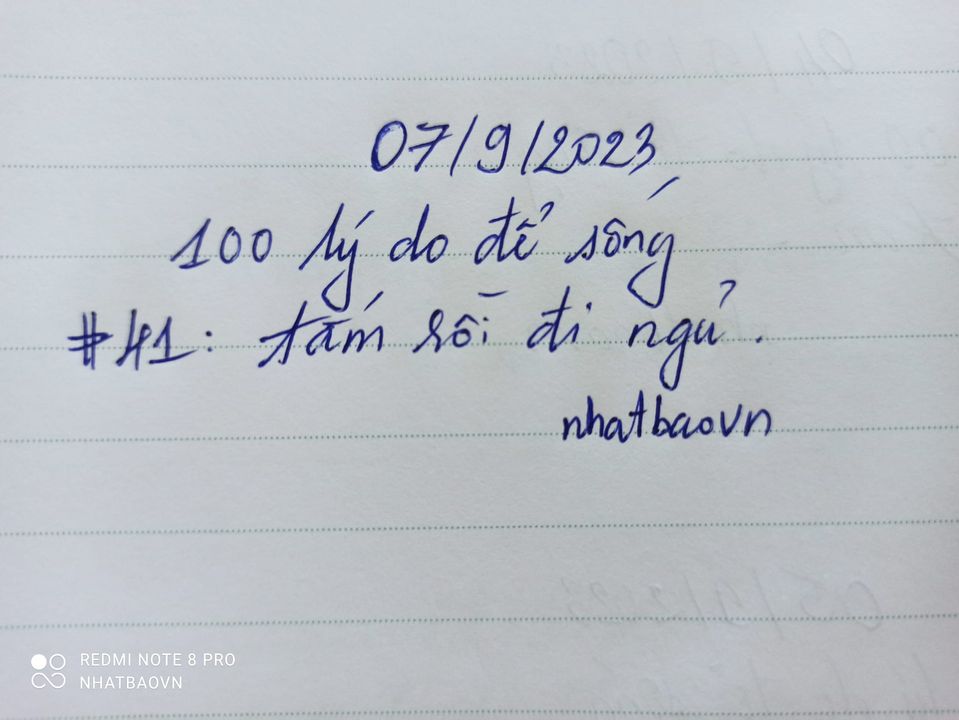 07/9/2023
100 lý do để sống
#41: tắm rồi đi ngủ.
nhatbaovn
REDMI NOTE 8 PRO
NHATBAOVN